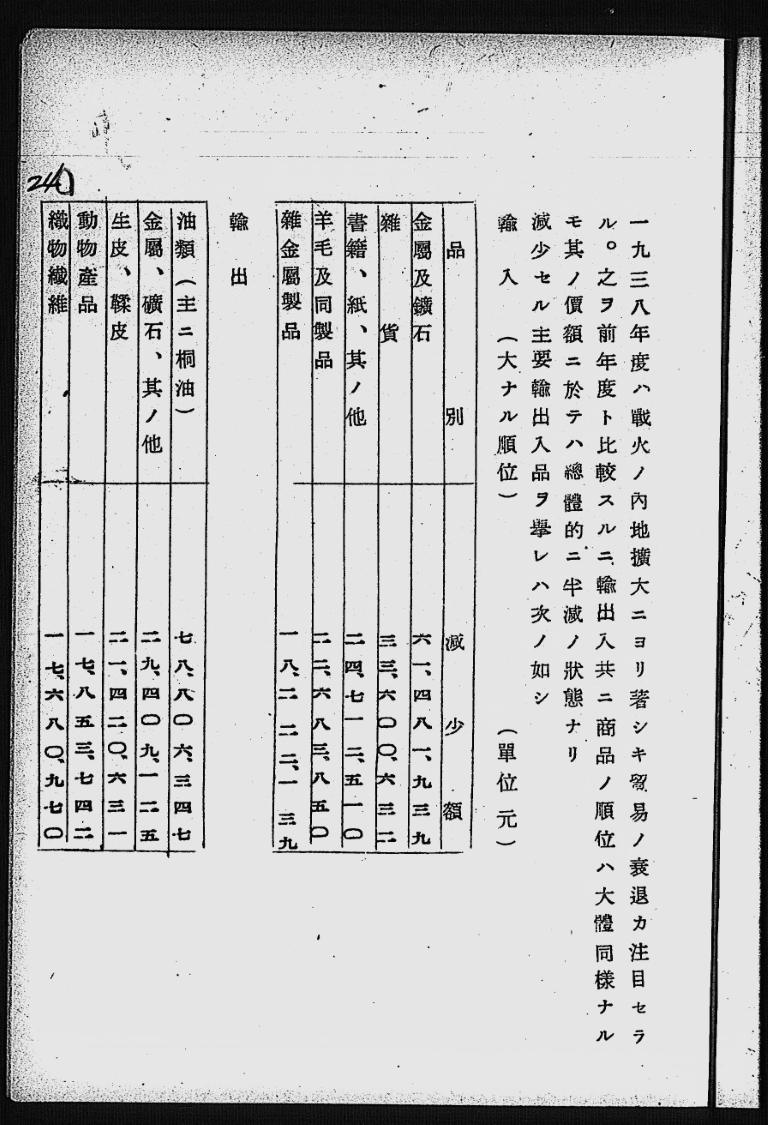 一九三八年度ハ戰火ノ內地擴大ニヨリ著シキ貿易ノ衰退カ注目セラ
ル。之ヲ前年度ト比較スルニ輸出入共ニ商品ノ順位ハ大體同樣ナル
モ其ノ價額ニ於テハ總體的ニ半減ノ狀態ナリ
減少セル主要輸出入品ヲ擧レハ次ノ如シ
輸入(大ナル順位) (單位元)
品別 減少額
金屬及鑛石 六一、四八一、九三九
雜貨 三三、六〇〇、六三二
書籍、紙、其ノ他 二四、七一二、五一〇
羊毛及同製品 二二、六八三、八五〇
雜金屬製品 一八、二二二、一三九
輸出
油類(主ニ桐油) 七八、八〇六、三四七
金屬、礦石、其ノ他 二九、四〇九、一二五
生皮、鞣皮 二一、四二〇、六三一
動物產品 一七、八五三、七四二
織物纖維 一七、六八〇、九七〇